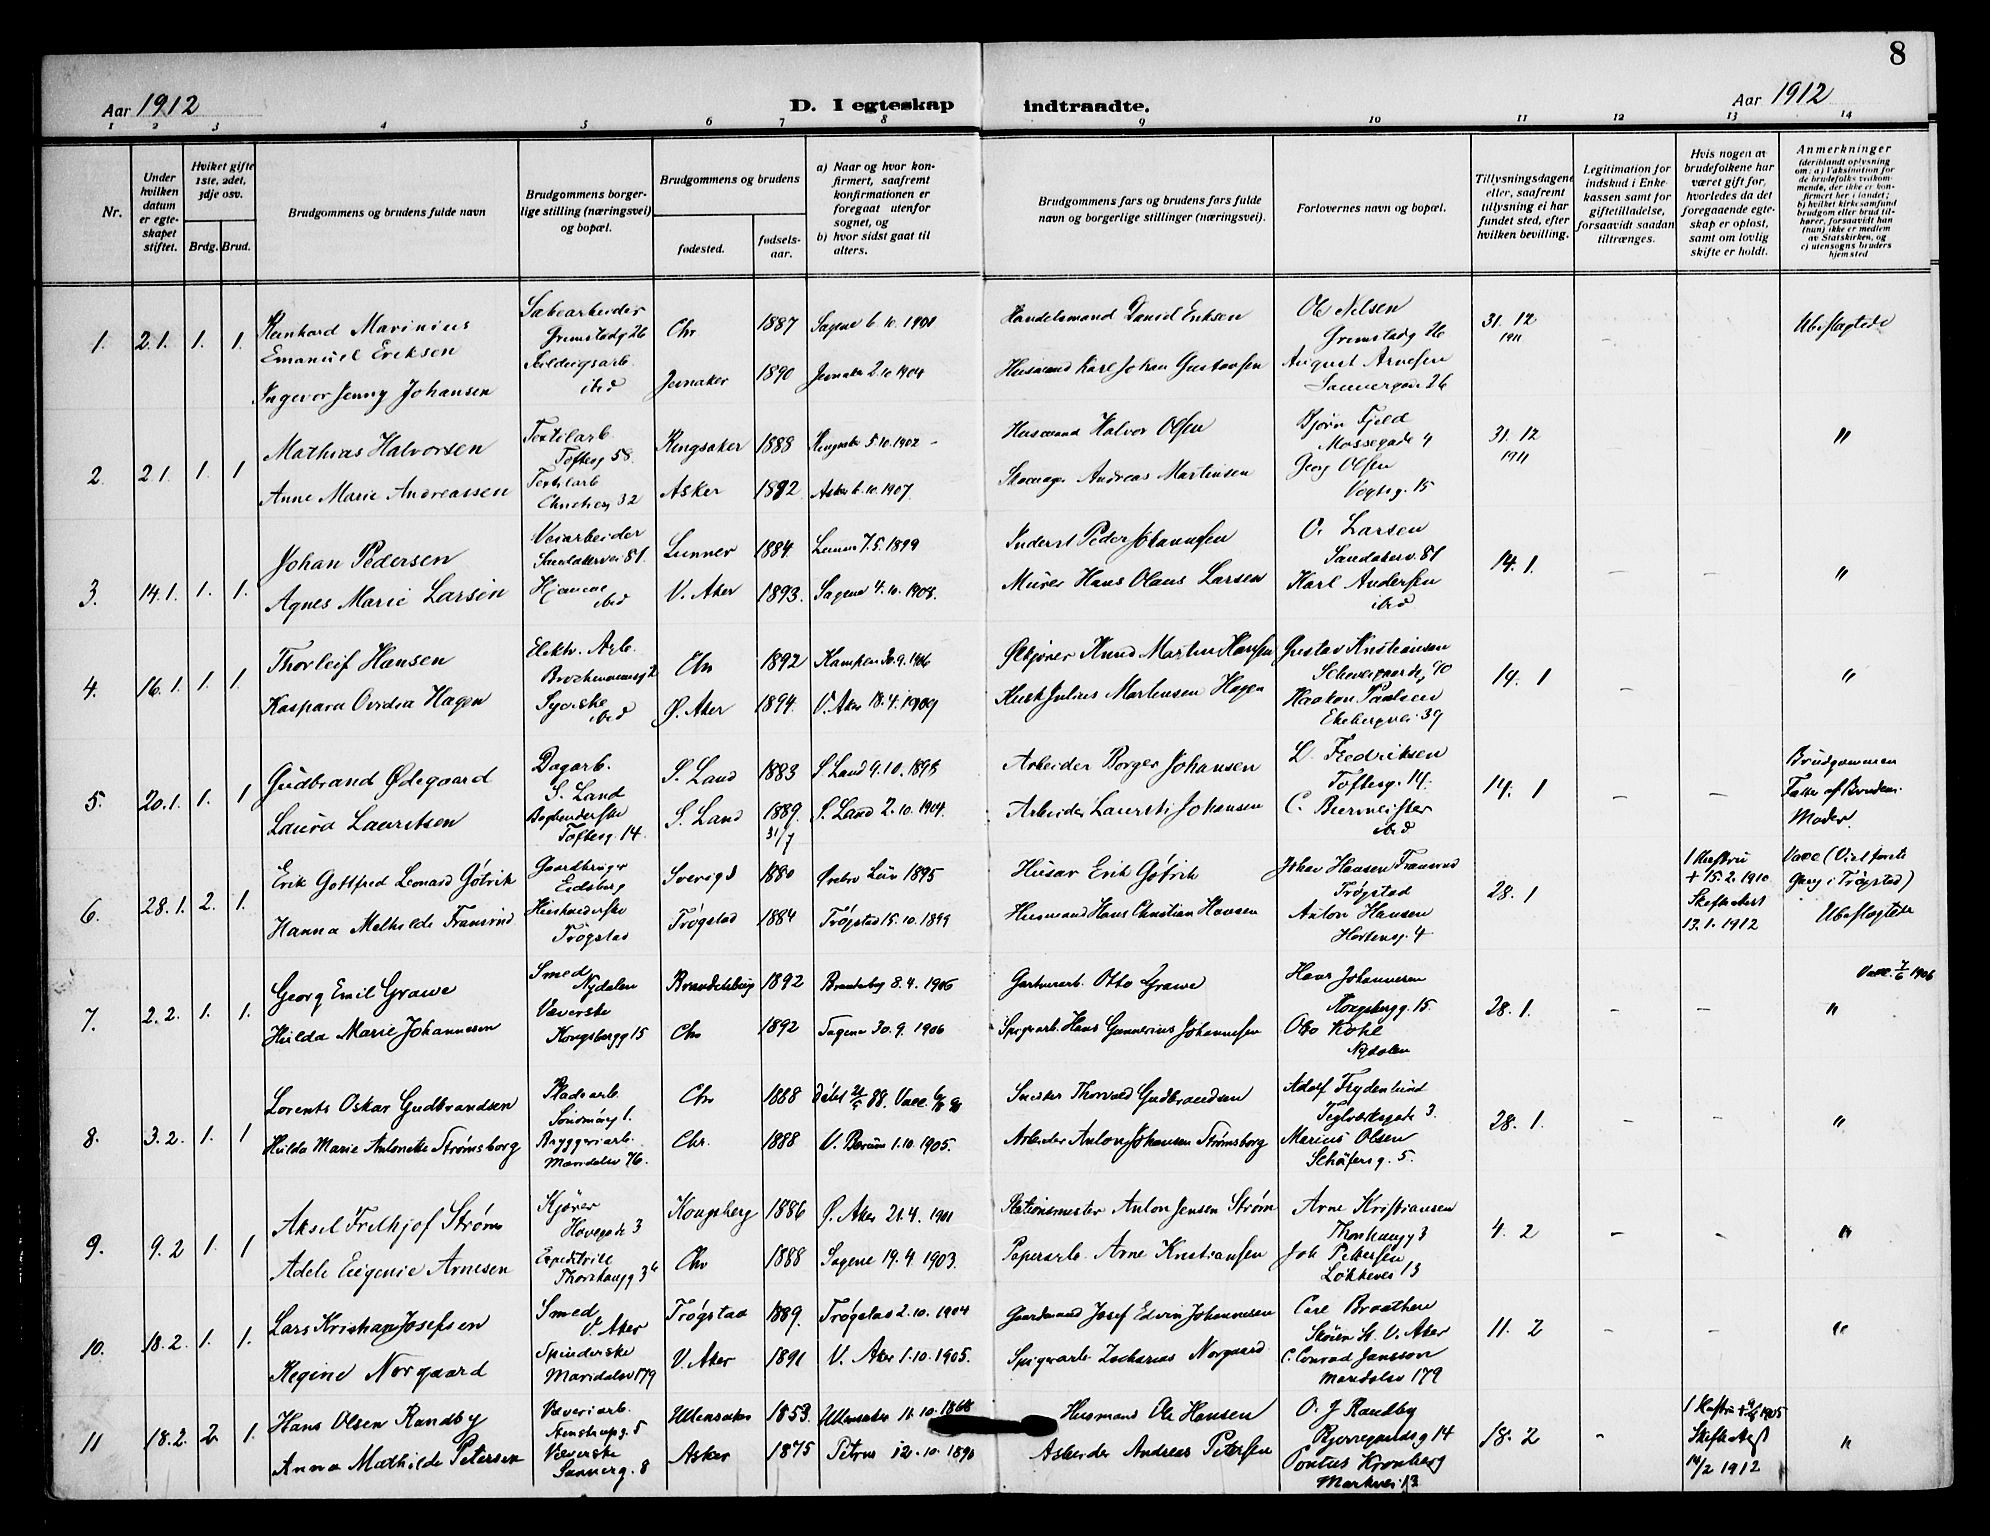 8
Aar 1912
D. I egteskap indtraadte.
Aar 1912
1 2 3 4 5 6 7 8 9 10 11 12 13 14
Nr.
Under hvilken datum er egteskapet stiftet.
Hvilket gifte 1ste, 2det, 3dje osv.
Brdg. Brud.
Brudgommens og brudens fulde navn
Brudgommens borgerlige stilling (næringsvei) og bopæl.
Brudgommens og brudens
fødested.
fødselsaar.
a) Naar og hvor konfirmert, saafremt konfirmationen er foregaat utenfor sognet, og
b) hvor sidst gaat til alters.
Brudgommens fars og brudens fars fulde navn og borgerlige stillinger (næringsvei).
Forlovernes navn og bopæl.
Tillysningsdagene eller, saafremt tillysning ei har fundet sted, efter hvilken bevilling.
Legitimation for indskud i Enkekassen samt for giftetilladelse, forsaavidt saadan tiltrænges.
Hvis nogen av brudefolkene har været gift før, hvorledes da det foregaaende egteskap er opløst, samt om lovlig skifte er holdt.
Anmerkninger
(deriblandt oplysning om: a) vaksination for de brudefolks vedkommende, der ikke er konfirmert her i landet; b) hvilket kirkesamfund brudgom eller brud tilhører, forsaavidt han (hun) ikke er medlem av Statskirken, og c) utensogns bruders hjemsted
1. 2.1. 1. 1. Reinhard Marinius Emanuel Eriksen
Grimstadg 26 Chr 1887 Sagene 6.10.1901 Handelsmand Daniel Eriksen Ole Nilsen Grimstadg 26 31.12 1911 Ubeslægtede
Ingevor Jenny Johansen ibid Jevnaker 1890 Jevnaker 2.10.1904 Husmand Karl Johan Gustavsen August Arnesen Sannergade 26
2. 2.1. 1. 1 Mathias Halvorsen Textilarb Tofteg 58. Ringsaker 1888 Ringsaker 5.10.1902 Husmand Halvor Olsen Bjørn Fjeld Mossegade 4 31.12 1911 "
Anne Marie Andreassen Textilarb 32 Asker 1892 Asker 6.10.1907. Andreas Martinsen Georg Olsen Vogtsg. 15
3. 14.1. 1. 1. Johan Pedersen Veiarbeider Sandakervei 81. Lunner 1884. Lunner 7.5.1899 Inderst Peder Johannesen O. Larsen Sandakerv. 81 14.1. "
Agnes Marie Larsen Hjemme ibid V. Aker 1893. Sagene 4.10.1908. Murer Hans Olaus Larsen Karl Andersen ibid
4. 16.1. 1. 1. Thorleif Hansen Elektr. Arb. Chr 1892 Kampen 30.9.1906 Knud Martin Hansen Gustav Kristiansen Schweigaardsg 90 14.1 "
Kaspara Ovidia Hagen Syerske ibid Ø. Aker 1894. V. Aker 18.4.1909 Kusk Julius Martinsen Hagen Haakon Paulsen Ekebergvei 39
5. 20.1. 1. 1 Gudbrand Ødegaard Dagarb. S. Land S. Land 1883 S. Land 9.10.1898 Arbeider Borger Johansen L. Fredriksen Tofteg. 14. 14.1 Brudgommen Fætter af Brudens Moder.
Laura Lauritsen Tofteg. 14 S. Land 1889. 31/7 S. Land 2.10.1904. Arbeider Laurits Johansen C. Burmeister ibid
6. 28.1. 2. 1. Erik Gottfred Leonard Götrik Gaardbruger Eidsberg Sverige 1880 Ørebro Län 1895 Husar Erik Götrik Johan Hansen Fransrud Trøgstad 28.1 1 Hustru + 15.2.1910 Skifte Attest 13.1.1912 Vacc (Viet første Gang i Trøgstad)
Hanna Mathilde Fransrud Trøgstad Trøgstad 1884 Trøgstad 15.10.1899 Husmand Hans Christian Hansen Anton Hansen Hortensg. 4 Ubeslægtede
7. 2.2. 1. 1. Georg Emil Grawe Smed Nydalen Brandenburg 1892 8.4.1906 Gartnerarb. Otto Grawe Hans Johannesen Kongsbergg. 15. 28.1. Vacc. 7/6 1906 "
Hulda Marie Johannesen Væverske Kongsbergg 15 Chr 1892 Sagene 30.9.1906 Spigerarb. Hans Gunnerius Johannesen Otto Kohl Nydalen
8. 3.2. 1. 1 Lorents Oskar Gudbrandsen Pladearb. Chr 1888 Snekker Thorvald Gudbrandsen Adolf Frydenlund Teglverksgate 3. 28.1. "
Hulda Marie Antonette Strømsborg Bryggeriarb. Maridalsv 76. Chr. 1888 V. Bærum 1.10.1905. Arbeider Anton Johansen Strømsborg Marius Olsen Schäfersg. 5.
9. 9.2 1. 1 Aksel Fridthjof Strøm Kjører Havegade 3 Kongsberg 1886 Ø. Aker 21.4.1901 Stationsmester Anton Jensen Strøm Arne Kristiansen Thorshaugg 3 4.2 "
Adele Eugenie Arnesen Expeditrice Thorshaugg 3 Chr 1888 Sagene 19.4.1903. Papirarb. Arne Kristiansen Joh Pettersen Løkkevei 13
10. 18.2. 1. 1. Lars Kristian Josefsen Smed V. Aker Trøgstad 1889. Trøgstad 2.10.1904 Gaardmand Josef Edvin Johannesen Carl Braathen Skøien St. V. Aker 11.2 "
Regine Norgaard Spinderske Maridalsv 179 V. Aker 1891 V. Aker 1.10.1905. Spigerarb. Zacharias Norgaard C. Conrad Jansson Maridalsv 179
11 18.2. 2. 1. Hans Olsen Randby Væveriarb. Ullensaker 1853. Ullensaker 11.10.1868 Husmand Ole Hansen O. J. Randby Bjerregaardsg 14 18.2 1 Hustru + 1905 Skifte Att 14/2 1912 "
Anna Mathilde Petersen Væverske Sannerg. 8 Asker 1875 Petrus 12.10.1890 Arbeider Andreas Petersen Pontus Kronberg Markvei 13